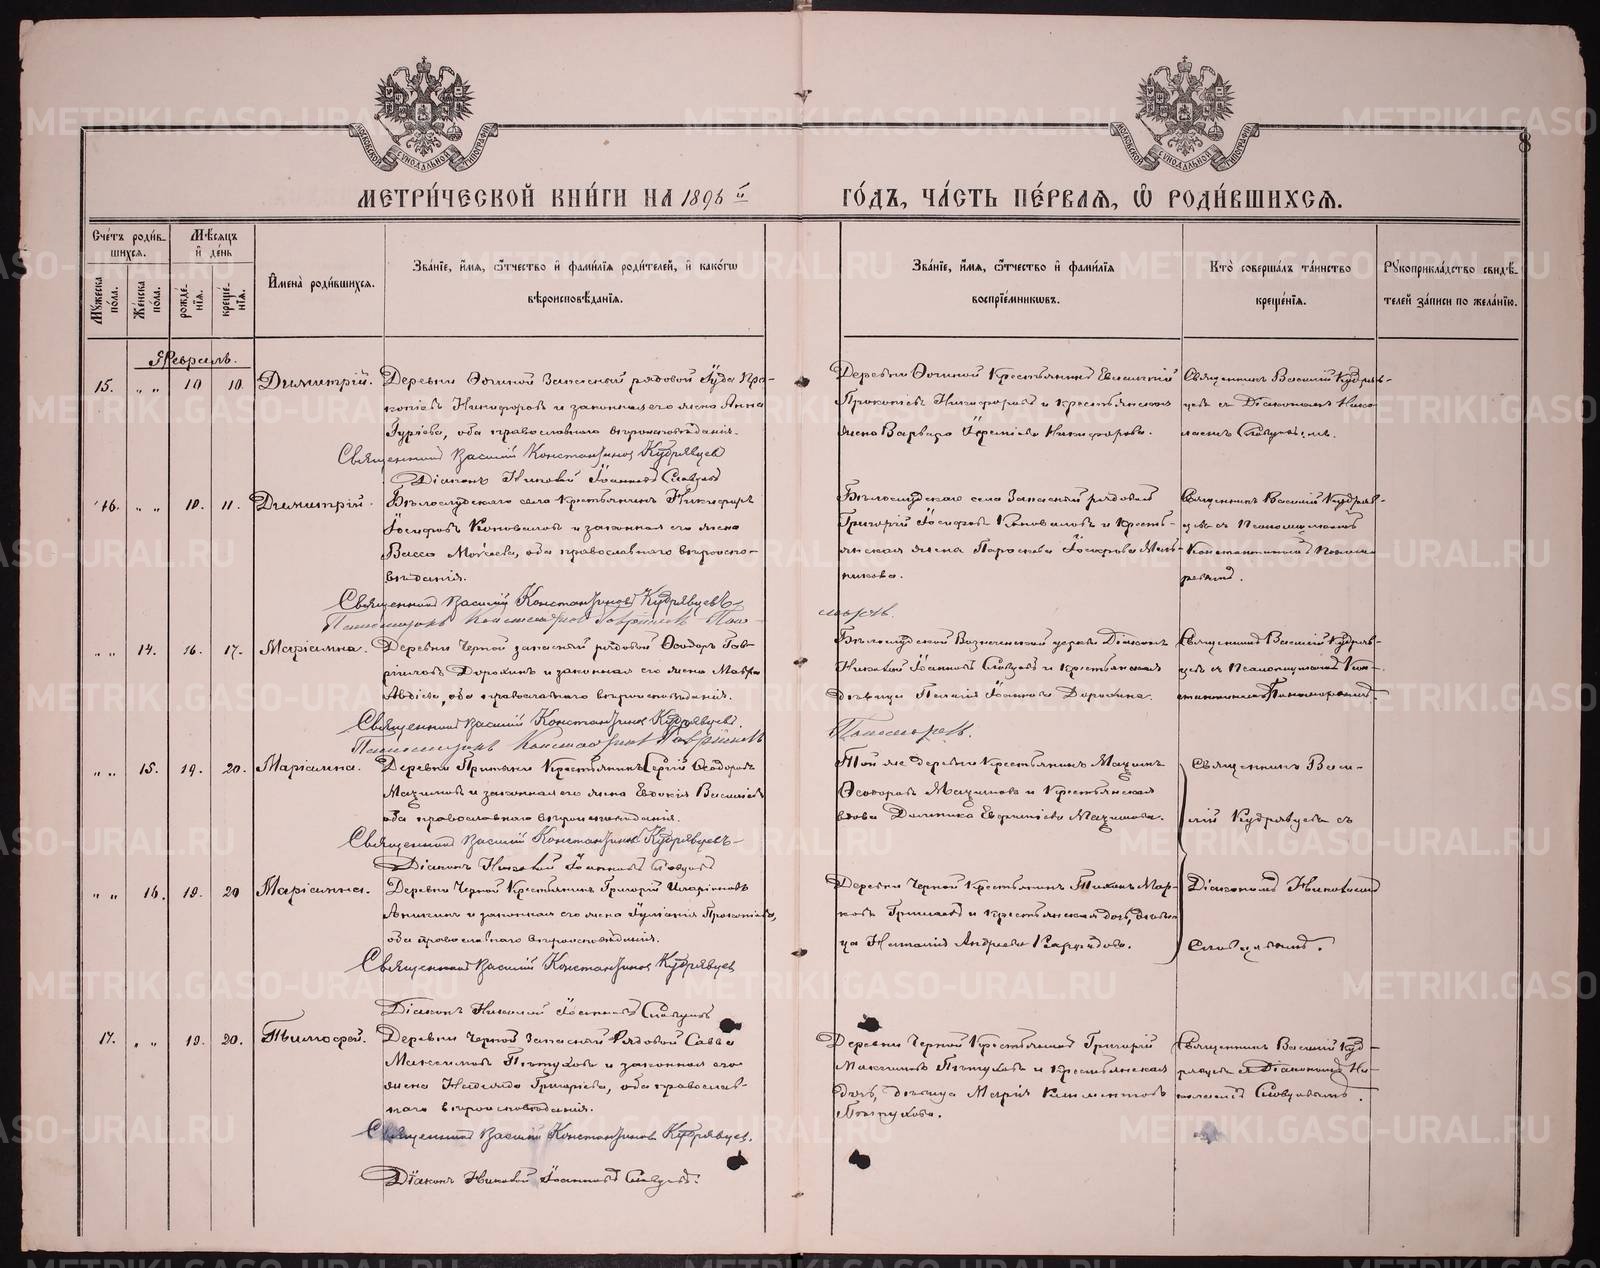 МЕТРИЧЕСКОЙ КНИГИ НА 1896 й ГОДЪ, ЧАСТЬ ПЕРВАЯ, Ѡ РОДИВШИХСЯ.
8
Счетъ родившихся.
Мужеска пола.
Женска пола.
Мѣсяцъ и день
рожденія.
крещенія.
Имена родившихся.
Званіе, имя, отчество и фамилія родителей, и какогѡ
вѣроисповѣданія.
Званіе, имя, отчество и фамилія
воспріемниковъ.
Кто совершалъ таинство
крещенія.
Рукоприкладство свидѣ-
телей записи по желанію.
Февраль.
15. " " 10 10. Димитрій.
Деревни запасный рядовой Іуда Про-
копіевъ Никифоровъ и законная его жена Анна
Гуріева, оба православнаго вѣроисповѣданія.
Священникъ Василій Константиновъ Кудрявцевъ
Діаконъ Николай Іоанновъ Словцовъ
Деревни Крестьянинъ
Прокопіевъ Никифоровъ и крестьянская
жена Варвара Никифорова.
Священникъ Василій Кудряв-
цевъ съ Діакономъ Нико-
лаемъ Словцовымъ.
16. " " 10. 11. Димитрій.
Бѣлослудскаго села Крестьянинъ Никифоръ
Іосифовъ Коноваловъ и законная его жена
Васса Моисеева, оба православнаго вѣроиспо-
вѣданія.
Священникъ Василій Константиновъ Кудрявцевъ
Псаломщикъ Константинъ Гавріиловъ Поно-
маревъ.
Бѣлослудскаго села Запасный рядовой
Григорій Іосифовъ Коноваловъ и кресть-
янская жена Параскева Іосифова Мель-
никова.
Священникъ Василій Кудряв-
цевъ съ Псаломщикомъ
Константиномъ Понома-
ревымъ.
" " 14. 16. 17. Маріамна.
Деревни Черной запасный рядовой Ѳеодоръ Гав-
ріиловъ Дорохинъ и законная его жена Мавра
Авдіева, оба православнаго вѣроисповѣданія.
Священникъ Василій Константиновъ Кудрявцевъ.
Псаломщикъ Константинъ Гавріиловъ
Пономаревъ.
Бѣлослудской Вознесенской церкви Діаконъ
Николай Іоанновъ Словцовъ и крестьянская
дѣвица Пелагія Іоаннова Дорохина.
Священникъ Василій Кудряв-
цевъ съ Псаломщикомъ Кон-
стантиномъ Пономаревымъ.
" " 15. 19. 20. Маріамна.
Деревни Крестьянинъ Сергій Ѳеодоровъ
и законная его жена Евдокія Василіева
оба православнаго вѣроисповѣданія.
Священникъ Василій Константиновъ Кудрявцевъ
Діаконъ Николай Іоанновъ Словцовъ
Той же деревни Крестьянинъ
Ѳеодоровъ и Крестьянская
вдова
Священникъ Васи-
лій Кудрявцевъ съ
" " 16. 18. 20 Маріамна.
Деревни Черной Крестьянинъ Григорій Иларіоновъ
Аникинъ и законная его жена Іуліанія Прокопіева,
оба православнаго вѣроисповѣданія.
Священникъ Василій Константиновъ Кудрявцевъ
Діаконъ Николай Іоанновъ Словцовъ
Деревни Черной Крестьянинъ Тихонъ Мар-
ковъ и крестьянская дочь, дѣви-
ца Наталія Андреева
Діакономъ Николаемъ
Словцовымъ.
17. " " 19. 20. Тимоѳей.
Деревни Черной Запасный Рядовой Савва
Максимовъ Пѣтуховъ и законная его
жена Наталія Григоріева, оба православ-
наго вѣроисповѣданія.
Священникъ Василій Константиновъ Кудрявцевъ.
Діаконъ Николай Іоанновъ Словцовъ.
Деревни Черной Крестьянинъ Григорій
Максимовъ Пѣтуховъ и крестьянская
дочь, дѣвица Марія Климентова
Пѣтухова.
Священникъ Василій Куд-
рявцевъ съ Діакономъ Ни-
колаемъ Словцовымъ.
METRIKI.GASO-URAL.RU